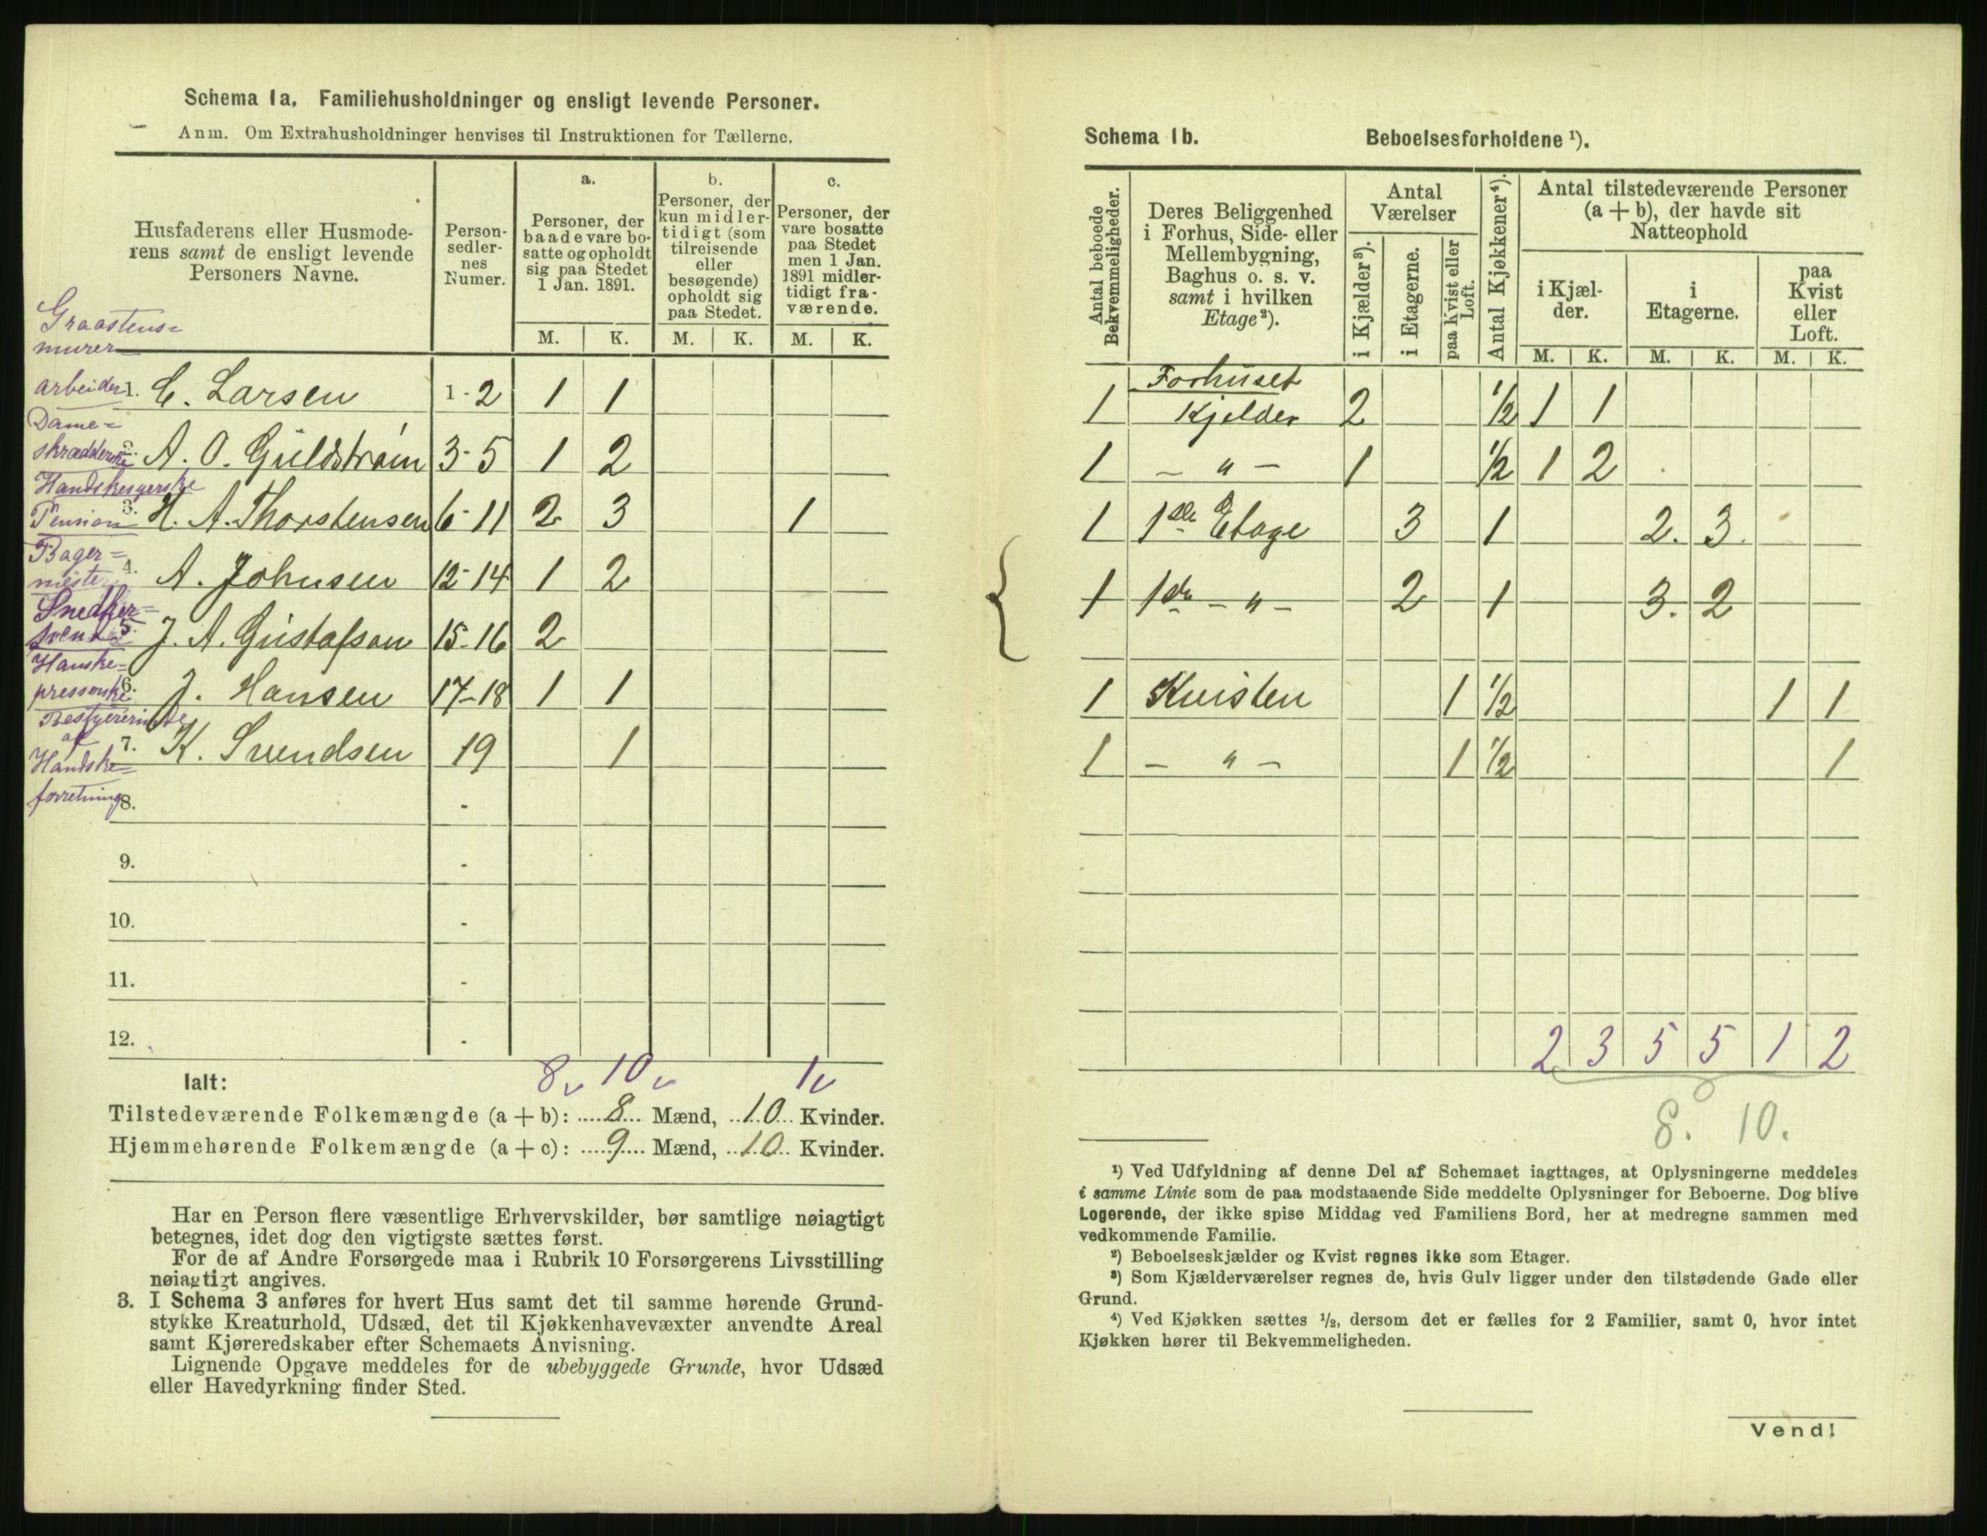 Schema 1a. Familiehusholdninger og ensligt levende Personer.
Anm. Om Extrahusholdninger henvises til Instruktionen for Tællerne.
Husfaderens eller Husmode-
rens samt de ensligt levende
Personers Navne.
Person-
sedler-
nes
Numer.
a.
Personer, der
baade vare bo-
satte og opholdt
sig paa Stedet
1 Jan. 1891.
b.
Personer, der
kun midler-
tidigt (som
tilreisende
eller
besøgende)
opholdt sig
paa Stedet.
c.
Personer, der
vare bosatte
paa Stedet
men 1 Jan.
1891 midler-
tidigt fra-
værende.
M. K. M. K. M. K.
Graastens-
murer
arbeider 1. C. Larsen 1-2 1 1
Dame-
skrædderske 2. A. O. Güldstrøm 3-5 1 2
Handskesyerske
Pension 3. H. A. Thorstensen 6-11 2 3 1
Bager-
mester 4. A. Johnsen 12-14 1 2
Snedker-
svend 5. J. A. Gustafson 15-16 2
Hanske-
presserske 6. J. Hansen 17-18 1 1
Bestyrerinde
af 7. K. Svendsen 19 1
Handske-
forretning 8. -
9. -
10. -
11. -
12. -
Ialt: 8 v 10 v 1 v
Tilstedeværende Folkemængde (a + b): 8 Mænd, 10 Kvinder.
Hjemmehørende Folkemængde (a + c): 9 Mænd, 10 Kvinder.
Har en Person flere væsentlige Erhvervskilder, bør samtlige nøiagtigt
betegnes, idet dog den vigtigste sættes først.
For de af Andre Forsørgede maa i Rubrik 10 Forsørgerens Livsstilling
nøiagtigt angives.
3. I Schema 3 anføres for hvert Hus samt det til samme hørende Grund-
stykke Kreaturhold, Udsæd, det til Kjøkkenhavevæxter anvendte Areal
samt Kjøreredskaber efter Schemaets Anvisning.
Lignende Opgave meddeles for de ubebyggede Grunde, hvor Udsæd
eller Havedyrkning finder Sted.
Schema 1b. Beboelsesforholdene ¹).
Antal beboede
Bekvemmeligheder.
Deres Beliggenhed
i Forhus, Side- eller
Mellembygning,
Baghus o. s. v.
samt i hvilken
Etage²).
Antal
Værelser
i Kjælder³).
i Etagerne.
paa Kvist eller
Loft.
Antal Kjøkkener⁴).
Antal tilstedeværende Personer
(a + b), der havde sit
Natteophold
i Kjæl-
der.
i
Etagerne.
paa
Kvist
eller
Loft.
M. K. M. K. M. K.
Forhuset
1 Kjelder 2 1/2 1 1
1 - " - 1 1/2 1 2
1 1ste Etage 3 1 2. 3.
1 1ste - " - 2 1 3. 2
1 Kvisten 1 1/2 1 1
1 - " - 1 1/2 1
2 3 5 5 1 2
8. 10.
¹) Ved Udfyldning af denne Del af Schemaet iagttages, at Oplysningerne meddeles
i samme Linie som de paa modstaaende Side meddelte Oplysninger for Beboerne. Dog blive
Logerende, der ikke spise Middag ved Familiens Bord, her at medregne sammen med
vedkommende Familie.
²) Beboelseskjælder og Kvist regnes ikke som Etager.
³) Som Kjælderværelser regnes de, hvis Gulv ligger under den tilstødende Gade eller
Grund.
⁴) Ved Kjøkken sættes ½, dersom det er fælles for 2 Familier, samt 0, hvor intet
Kjøkken hører til Bekvemmeligheden.
Vend!